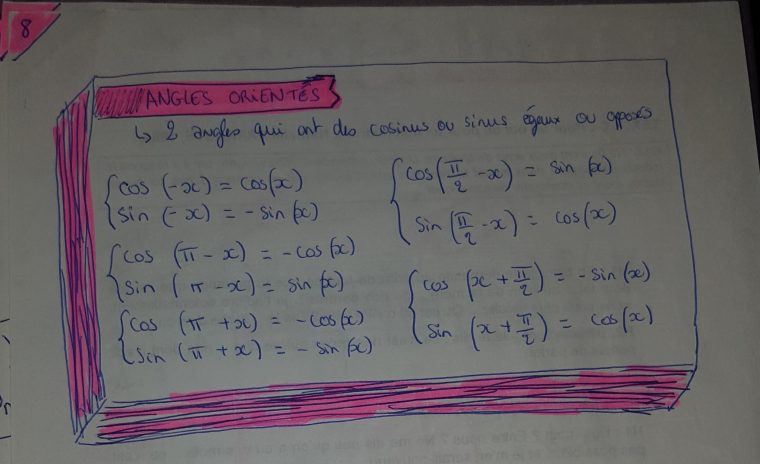 8
ANGLES ORIENTÉS
↳ 2 angles qui ont des cosinus ou sinus égaux ou opposés
cos (-x) = cos(x)
sin (-x) = - sin (x)
cos (π - x) = - cos (x)
sin (π - x) = sin (x)
cos (π + x) = - cos (x)
sin (π + x) = - sin (x)
cos (π/2 - x) = sin (x)
sin (π/2 - x) = cos (x)
cos (x + π/2) = - sin (x)
sin (x + π/2) = cos (x)